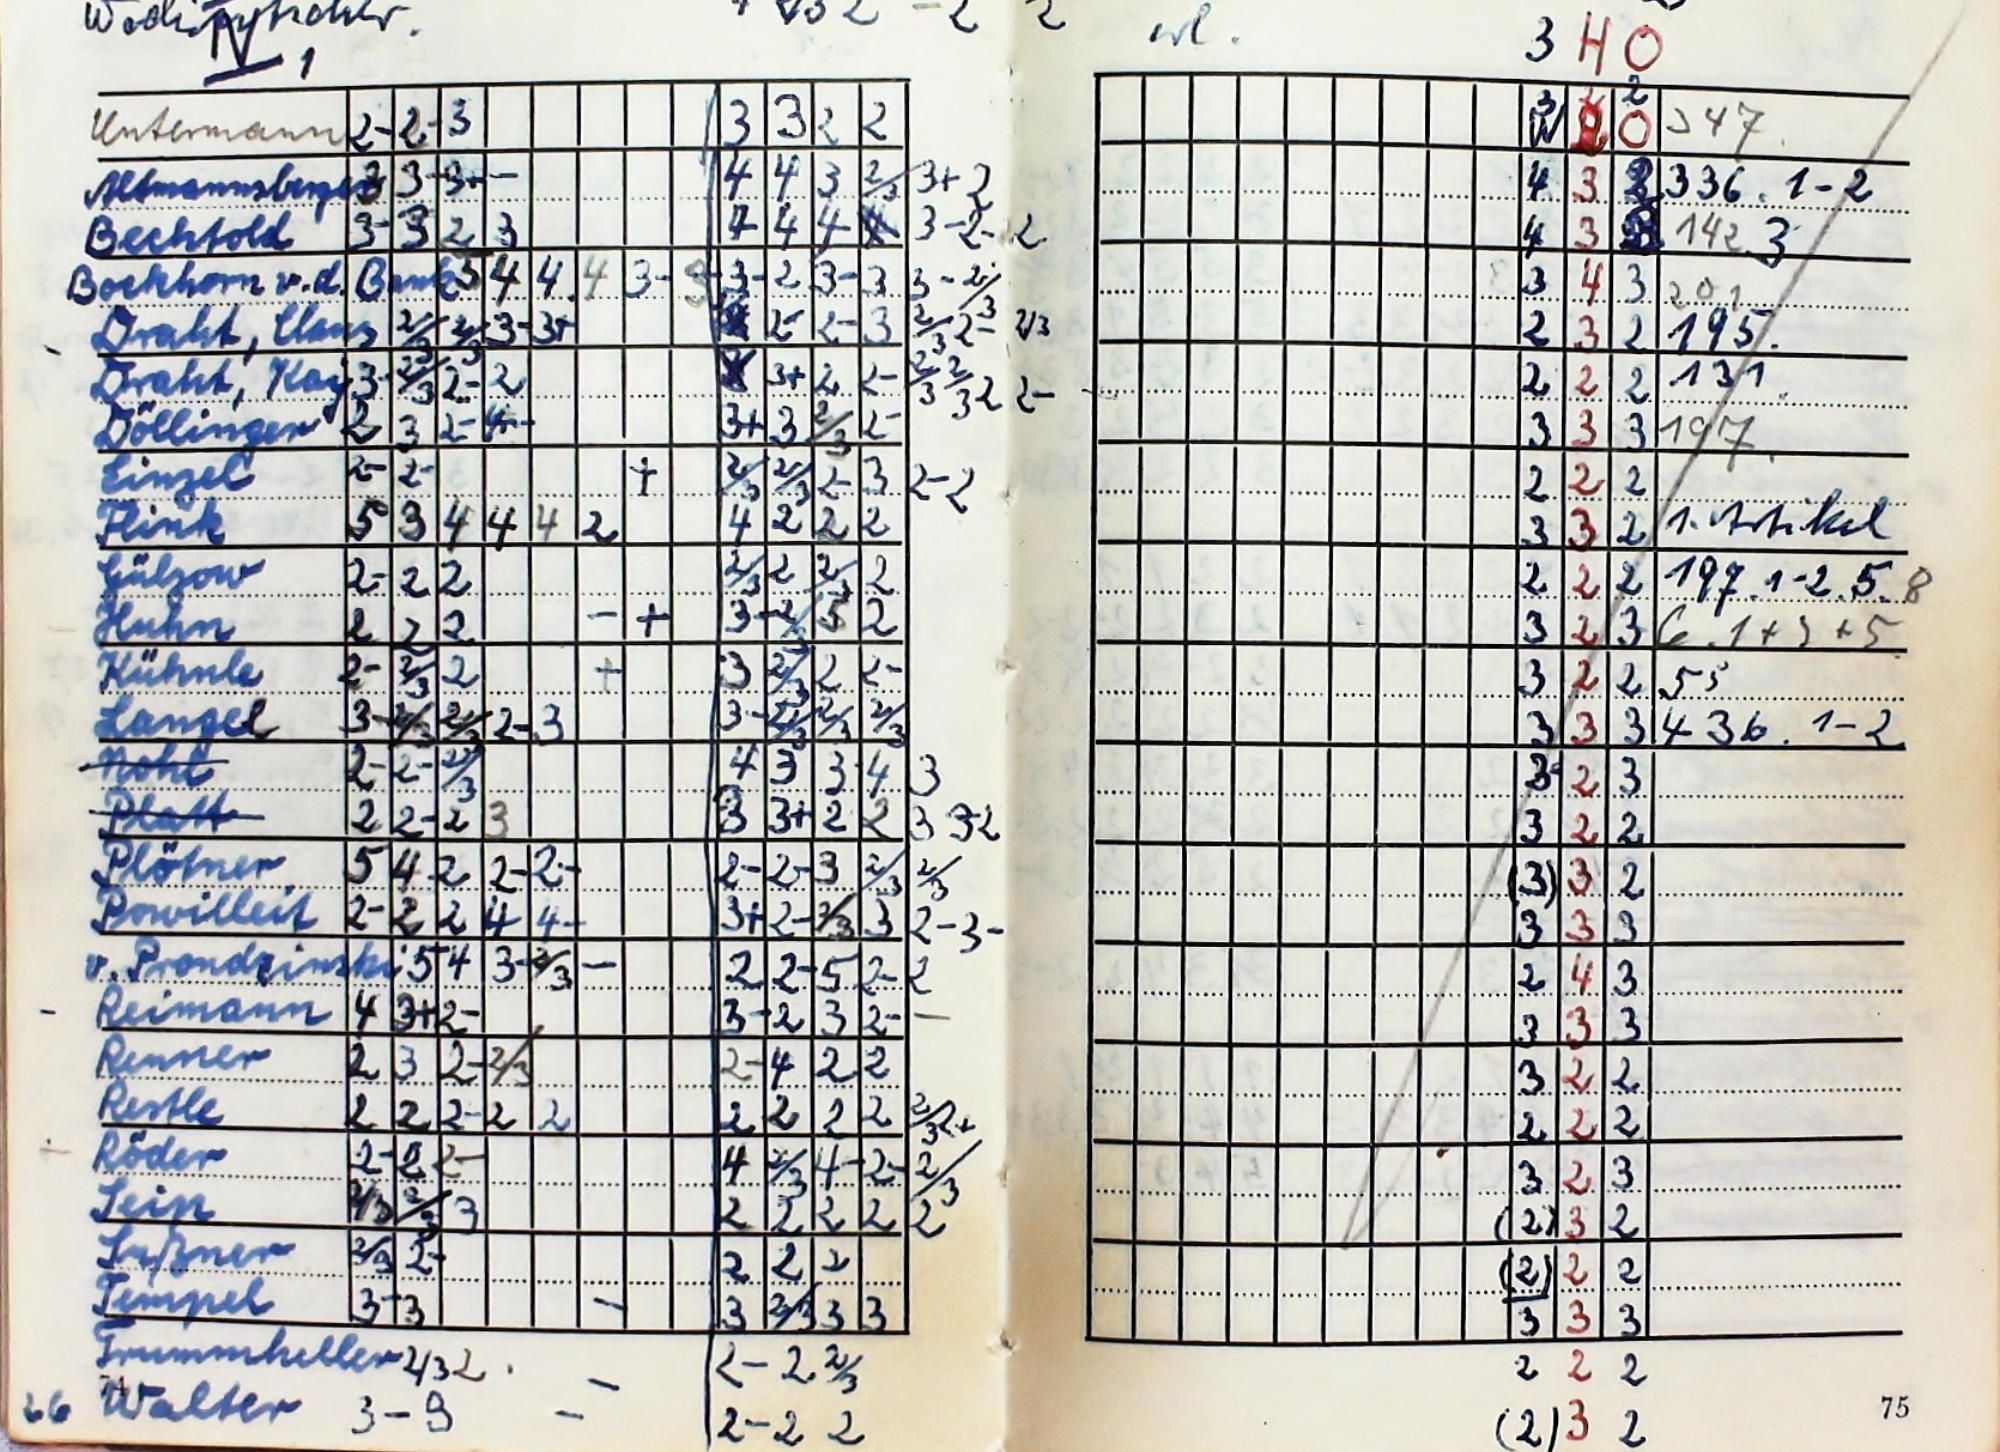 IV 1
3 H O
Untermann 2- 2- 3 3 3 2 2 2 347.
Altmannsberger 3 3- 3+ - 4 4 3 2/3 3+ 2 4 3 2 336. 1-2
Bechtold 3- 3 2 3 4 4 4 3- 2- 2 4 3 142 3
Bockhorn v. d. Bank 5 4 4 4 3- 3- 2 3- 3 3- 2/3 3 4 3 201
Draht, Claus 2/3 2/3 3- 3+ 2- 2- 3 2/3 2- 2/3 2 3 2 195.
Draht, Kay 3- 2/3 2- 2 3+ 2 2- 2/3 2/3 2 2- 2 2 2 131.
Döllinger 2 3 2- 4- 3+ 3 2/3 2- 3 3 3 197.
Einzel 2- 2- + 2/3 2/3 2- 3 2- 2 2 2 2
Flink 5 3 4 4 4 2 4 2 2 2 3 3 2 1. Artikel
Gülzow 2- 2 2 2/3 2 2/3 2 2 2 2 197. 1-2. 5. 8
Huhn 2 2 2 - + 3- 2/3 5 2 3 2 3 6. 1+3+5
Kühnle 2- 2/3 2 + 3 2/3 2 2- 3 2 2 55
Langel 3- 2/3 2/3 2- 3 3- 2/3 2/3 2/3 3 3 3 436. 1-2
Nohl 2- 2- 2/3 4 3 3- 4 3 3- 2 3
Platt 2 2- 2 3 3 3+ 2 2 3 3- 2 3 2 2
Plötner 5 4 2 2- 2- 2- 2- 3 2/3 2/3 (3) 3 2
Powilleit 2- 2 2 4 4- 3+ 2- 2/3 3 2- 3- 3 3 3
v. Prondzinski 5 4 3- 2/3 - 2 2- 5 2- 2 2 4 3
- Reimann 4 3+ 2- 3- 2 3 2- - 3 3 3
Renner 2 3 2- 2/3 2- 4 2 2 3 2 2
Restle 2 2 2- 2 2 2 2 2 2 2/3 2+ 2 2 2
+ Röder 2- 2 2- 4 2/3 4- 2- 2/3 3 2 3
Seip 2/3 2/3 3 2 2 2 2 2 (2) 3 2
Sußner 2/3 2- 2 2 2 (2) 2 2
Tempel 3- 3 - 3 2/3 3 3 3 3 3
Trummheller 2/3 2 . - 2- 2 2/3 2 2 2
26 Walter 3- 3 - 2- 2 2 (2) 3 2
75